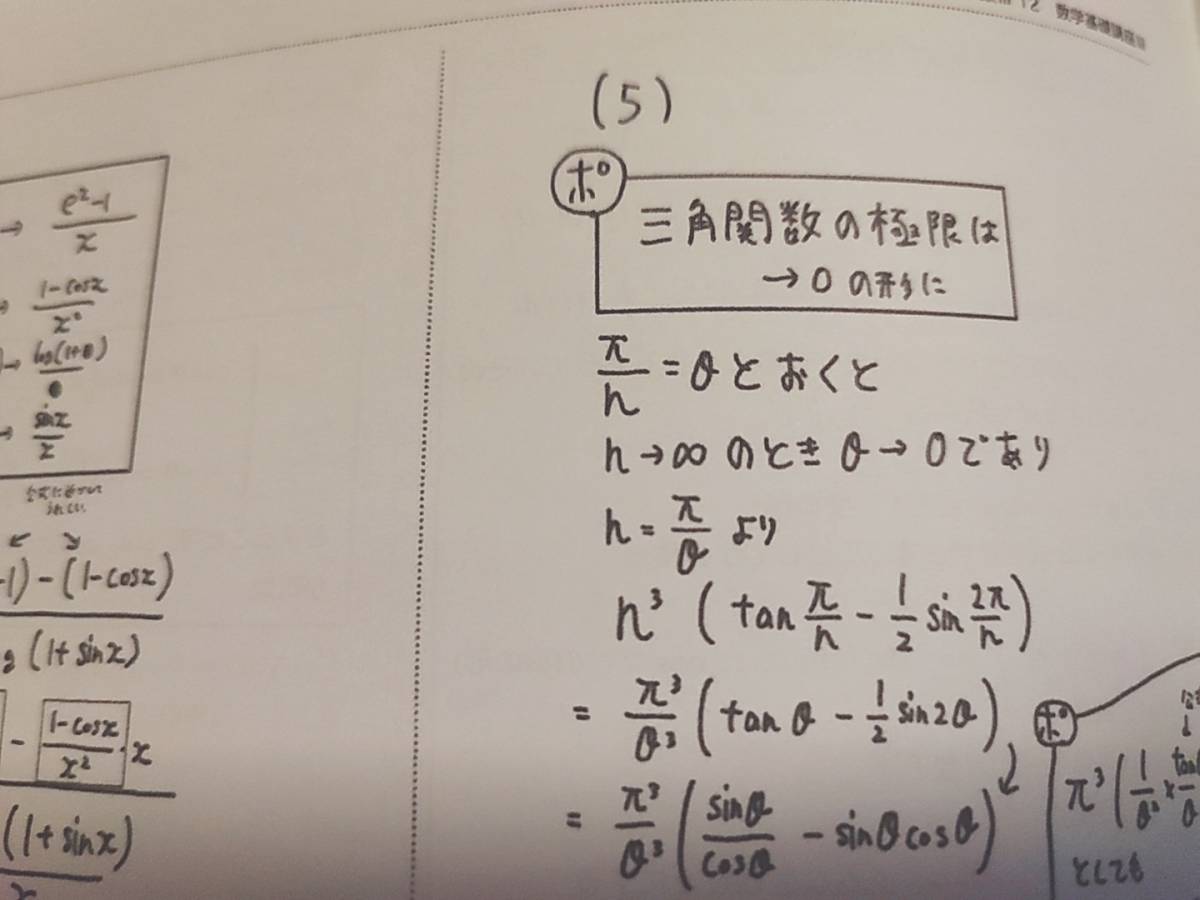 12 数学基礎講座III
→ e²-1/x
→ 1-cosx/x²
→ log(1+●)/●
→ sinx/x
-1) - (1-cosx)
g (1+sinx)
- 1-cosx/x² · x
(1+sinx)
x
(5)
ポ
三角関数の極限は
→0 の形に
π/n = θ とおくと
n→∞ のとき θ→0 であり
n = π/θ より
n³ ( tan π/n - 1/2 sin 2π/n )
= π³/θ³ ( tan θ - 1/2 sin2θ )
= π³/θ³ ( sinθ/cosθ - sinθ cosθ )
ポ
π³ ( 1/θ² × tan/θ
としても